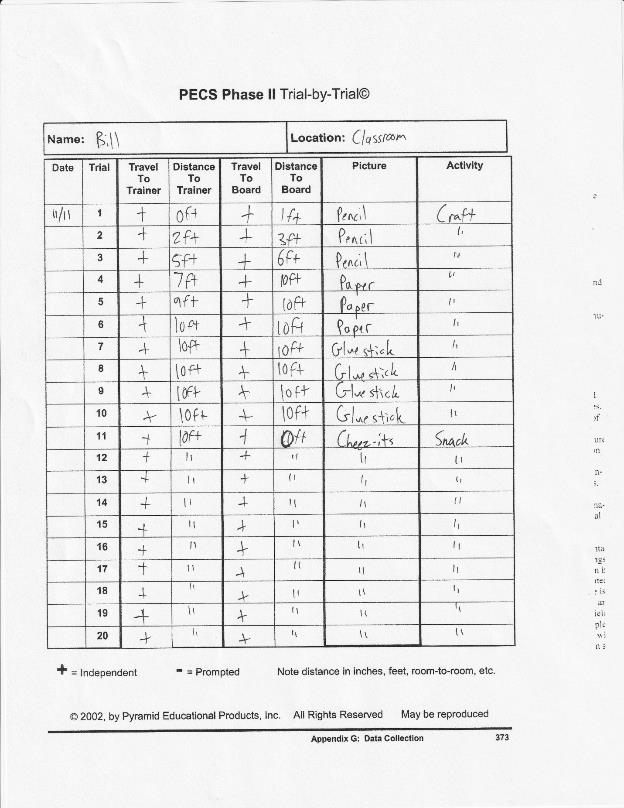 PECS Phase II Trial-by-Trial©
Name: Bill Location: Classroom
Date Trial Travel To Trainer Distance To Trainer Travel To Board Distance To Board Picture Activity
11/11 1 + 0ft + 1ft Pencil Craft
2 + 2ft + 3ft Pencil "
3 + 5ft + 6ft Pencil "
4 + 7ft + 10ft Paper "
5 + 9ft + 10ft Paper "
6 + 10ft + 10ft Paper "
7 + 10ft + 10ft Glue stick "
8 + 10ft + 10ft Glue stick "
9 + 10ft + 10ft Glue stick "
10 + 10ft + 10ft Glue stick "
11 + 10ft + Cheez-its Snack
12 + " + " " "
13 + " + " " "
14 + " + " " "
15 + " + " " "
16 + " + " " "
17 + " + " " "
18 + " + " " "
19 + " + " " "
20 + " + " " "
+ = Independent - = Prompted Note distance in inches, feet, room-to-room, etc.
© 2002, by Pyramid Educational Products, Inc. All Rights Reserved May be reproduced
Appendix G: Data Collection 373